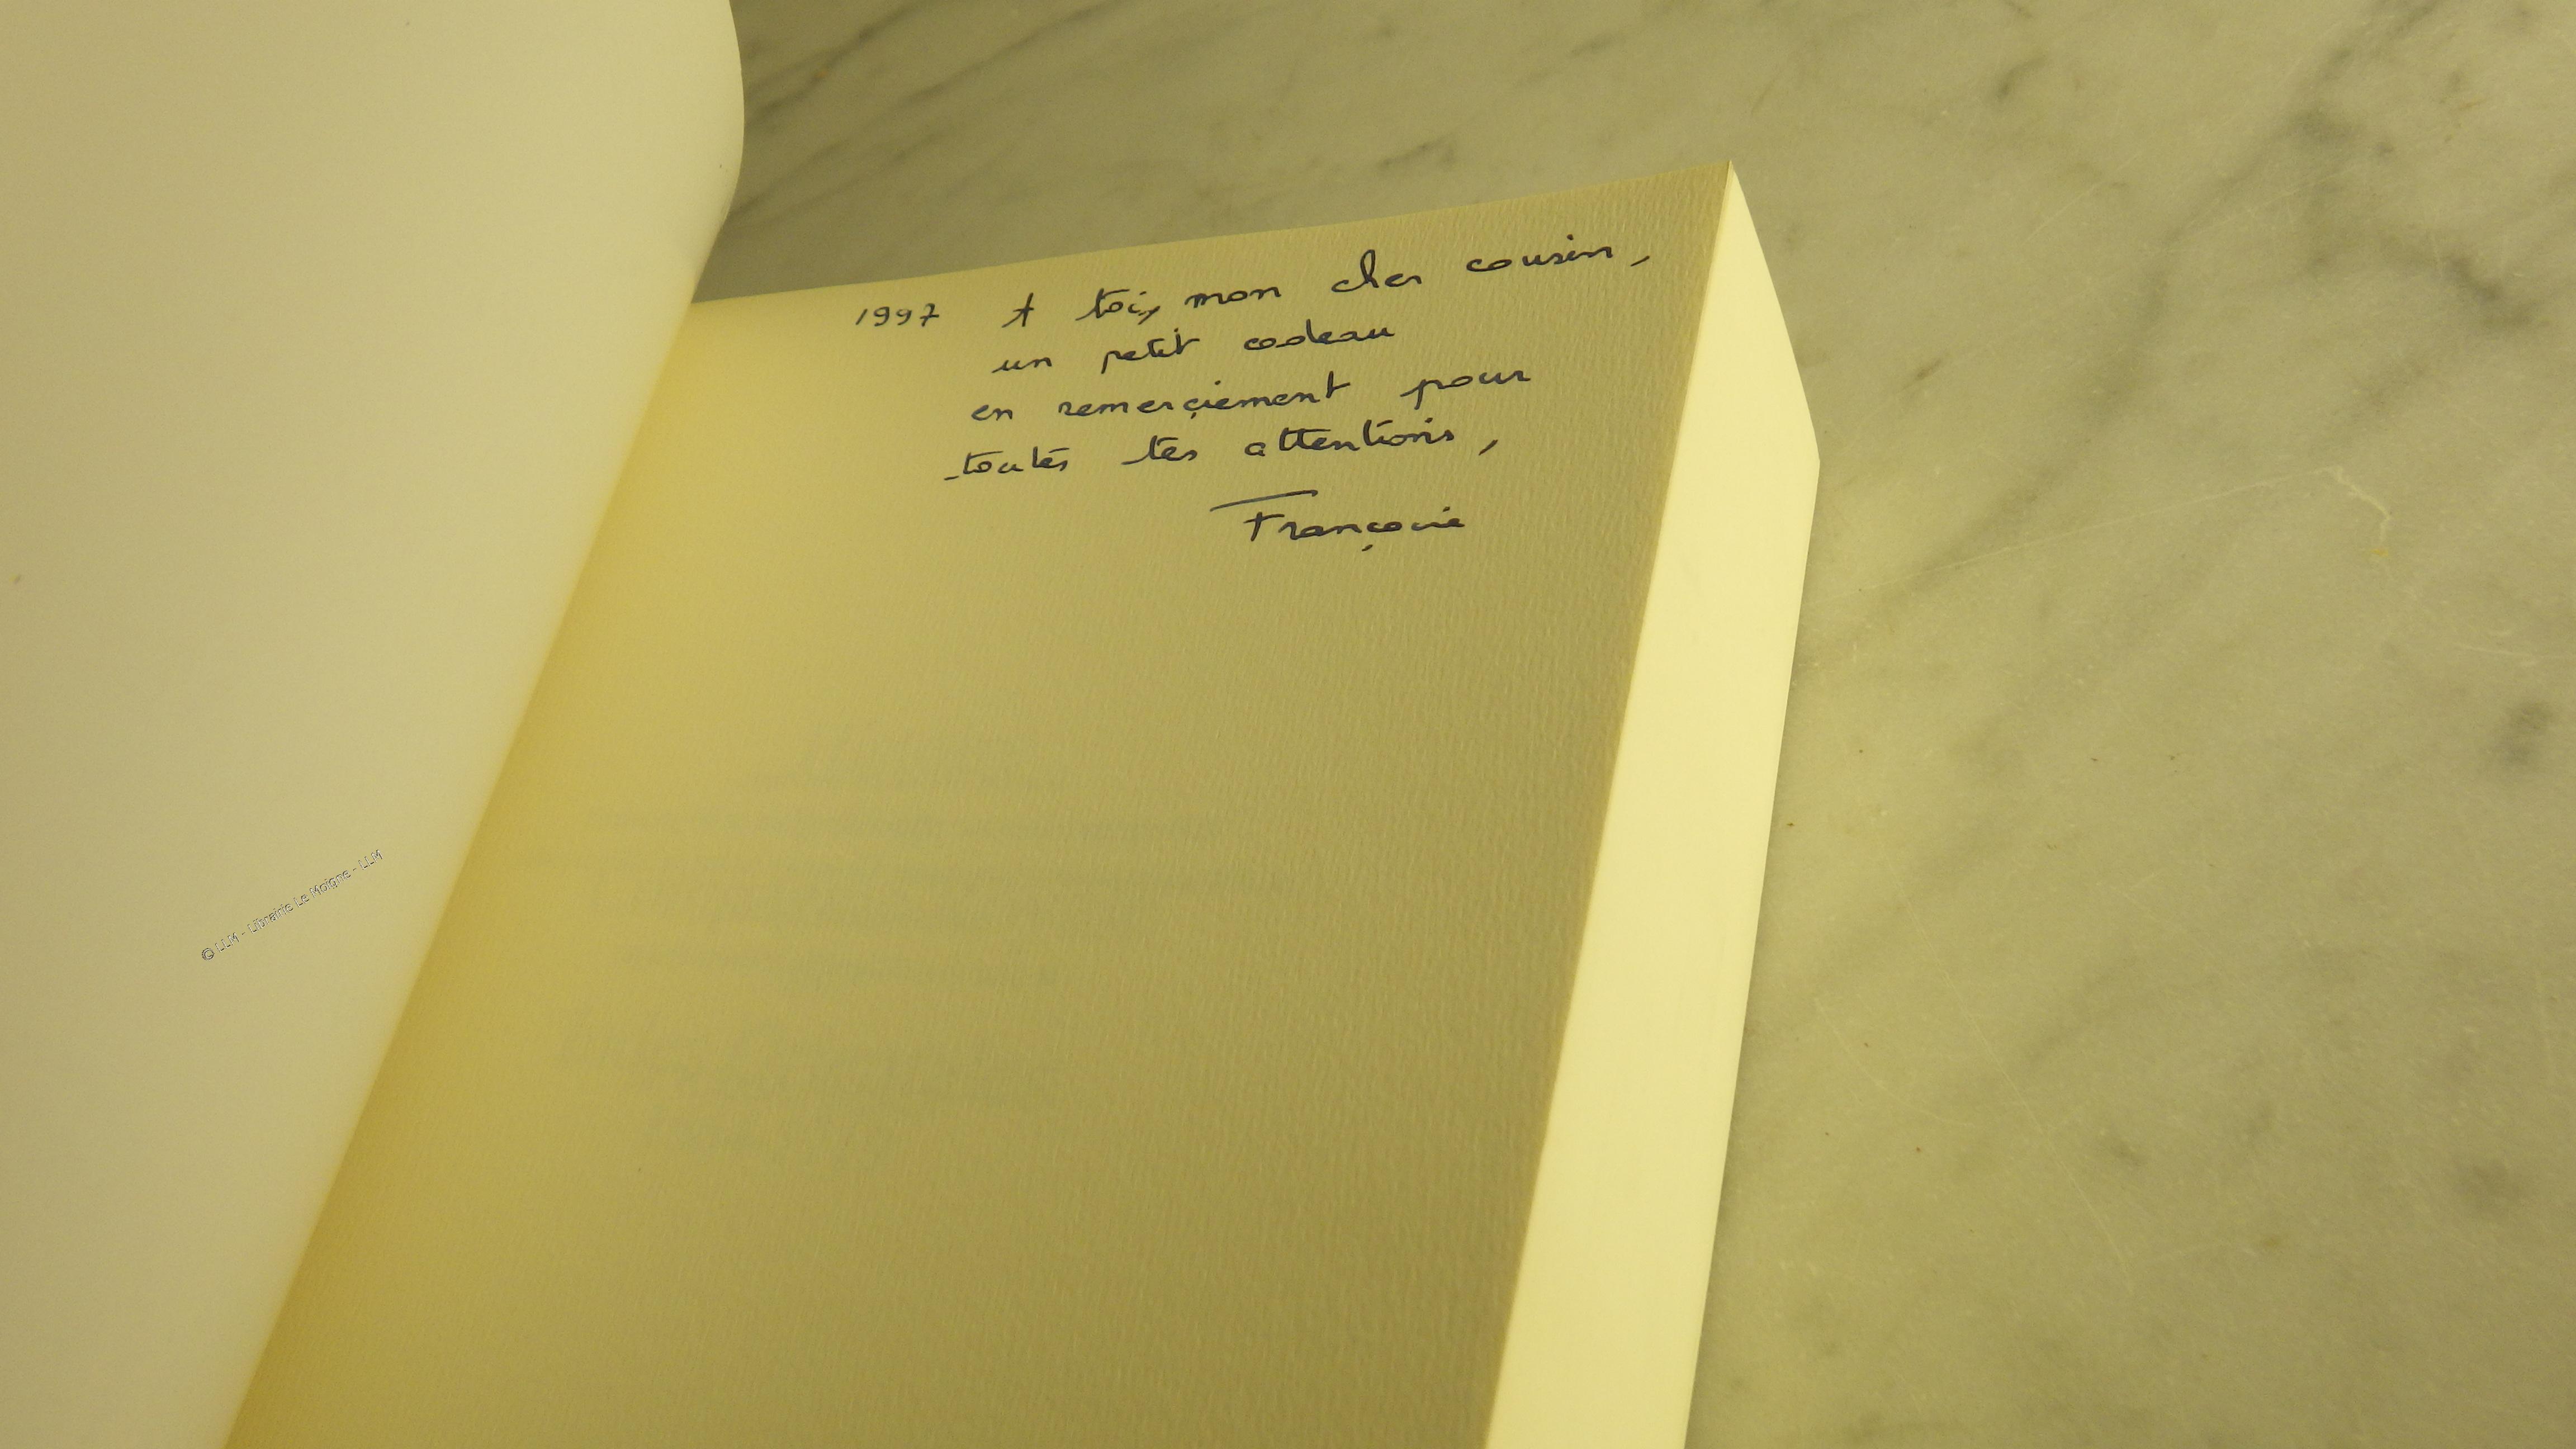 1997 A toi, mon cher cousin,
un petit cadeau
en remerçiement pour
toutes tes attentions,
Françoise
© LLM - Librairie Le Moigne - LLM